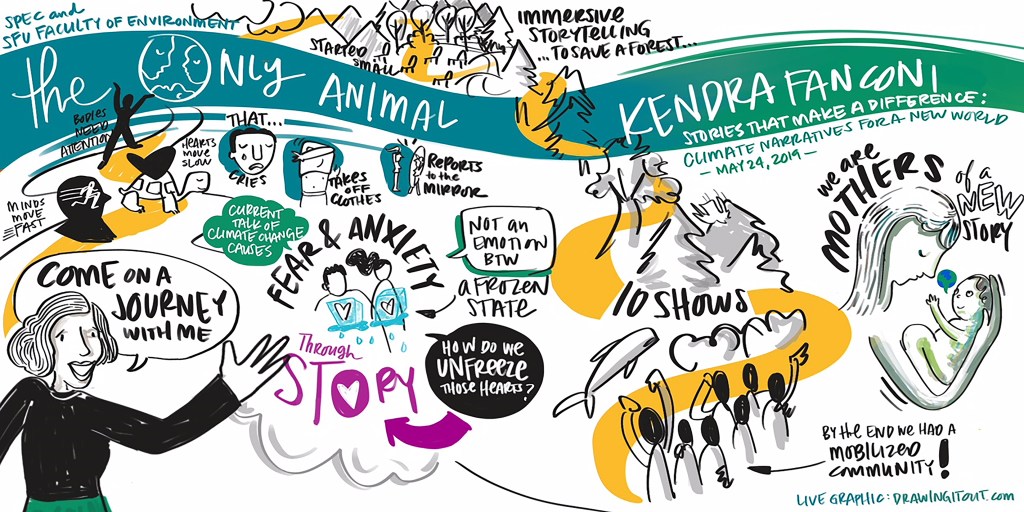 SPEC and
SFU FACULTY OF ENVIRONMENT
the ONLY
ANIMAL
STARTED
SMALL
IMMERSIVE
STORYTELLING
...TO SAVE A FOREST...
KENDRA FANCONI
STORIES THAT MAKE A DIFFERENCE:
CLIMATE NARRATIVES FOR A NEW WORLD
— MAY 24, 2019 —
BODIES
NEED
ATTENTION
HEARTS
MOVE
SLOW
MINDS
MOVE
FAST
THAT...
CRIES
TAKES
OFF
CLOTHES
REPORTS
to the
MIRROR
CURRENT
TALK OF
CLIMATE CHANGE
CAUSES
FEAR & ANXIETY
NOT AN
EMOTION
BTW
A FROZEN
STATE
HOW DO WE
UNFREEZE
THOSE HEARTS?
Through
STORY
COME ON A
JOURNEY
WITH ME
10 SHOWS
we are
MOTHERS
of a
NEW
STORY
BY the END WE HAD A
MOBILIZED
COMMUNITY!
LIVE GRAPHIC: DRAWINGITOUT.com